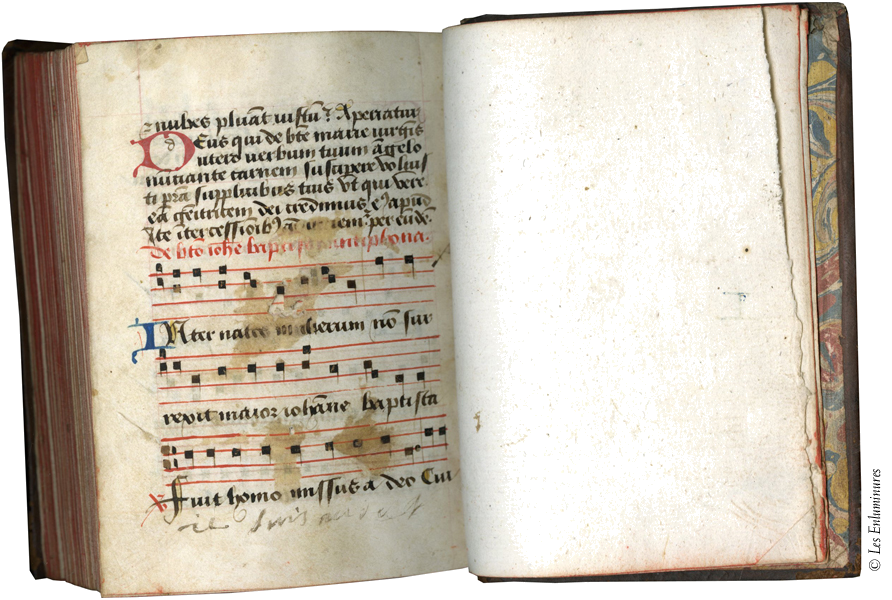 ⁊ nubes pluāt iustū ℟ Aperiatur
DEus qui de bte marie uirgīs
utero verbum tuum āgelo
nunciante carnem suscipere volui
ti p̄ra supplicibus tuis Vt qui vere
eā genitricem dei credimus eiꝰ apud
te ītercessionibꝰ per eūdē
de btō iohē baptista antiphona.
INter natos mulierum nō sur
rexit maior iohāne baptista
Fuit homo missus a deo Cui
© Les Enluminures